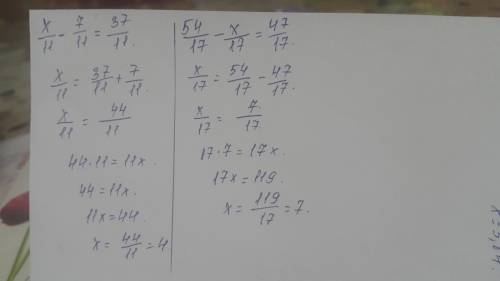 x/11 - 7/11 = 37/11.
x/11 = 37/11 + 7/11.
x/11 = 44/11
44·11 = 11x.
44 = 11x.
11x = 44.
x = 44/11 = 4
54/17 - x/17 = 47/17.
x/17 = 54/17 - 47/17.
x/17 = 7/17
17·7 = 17x.
17x = 119.
x = 119/17 = 7.